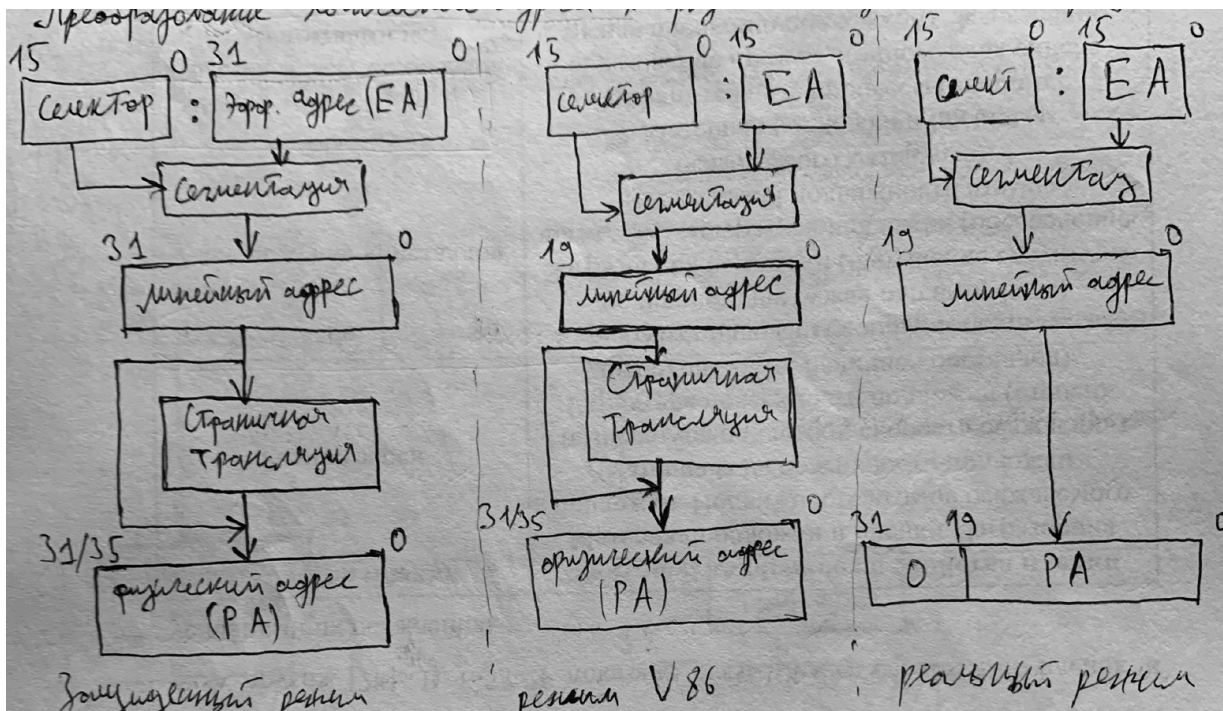 Преобразование
15 0 31 0
Селектор : Эфф. адрес (EA)
Сегментация
31 0
Линейный адрес
Страничная
трансляция
31/35 0
физический адрес
(PA)
Защищенный режим
15 0 15 0
Селектор : EA
Сегментация
19 0
Линейный адрес
Страничная
Трансляция
31/35 0
физический адрес
(PA)
режим V86
15 0 15 0
Селект : EA
Сегментац
19 0
Линейный адрес
31 19 0
0 PA
реальный режим